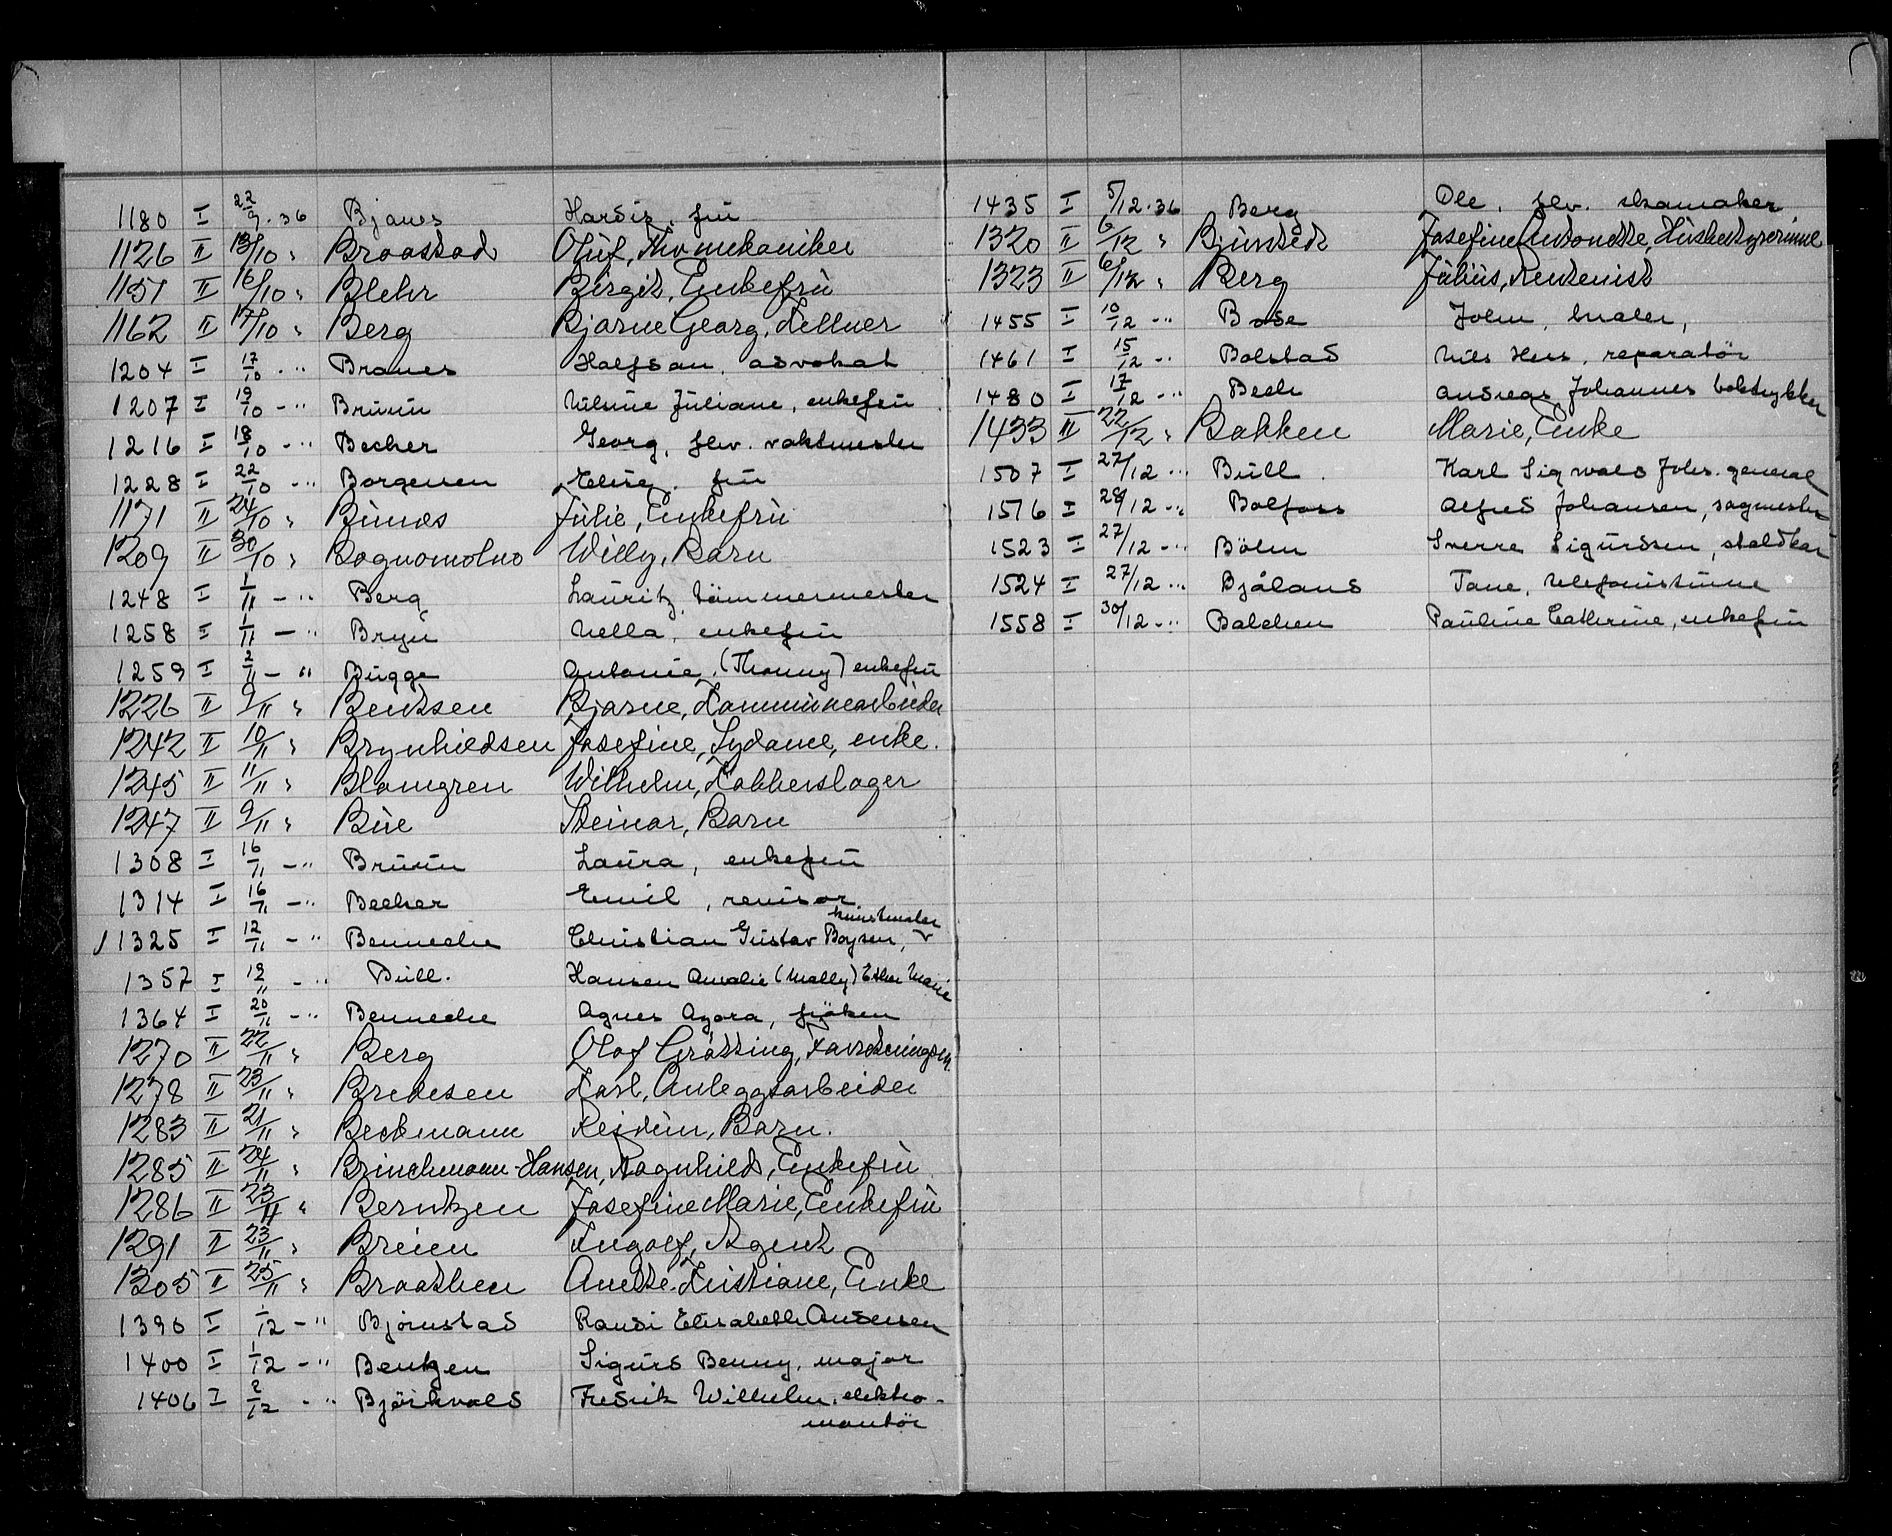 1180 I 22/9. 36 Bjanes Hardis, fru
1126 II 13/10 " Braastad Oluf, mekaniker
1151 II 16/10 " Blehr Birgit, Enkefru
1162 II 17/10 " Berg Bjarne Georg, Kellner
1204 I 17/10 - " Branes Halfdan, advokat
1207 I 19/10 - " Bruun Juliane, enkefru
1216 I 18/10 - " Becher Georg, flev. vaktmester
1228 I 22/10 - " Borgersen Elise, fru
1171 II 24/10 " Bunæs Julie, Enkefru
1209 II 30/10 " Bognomolno Willy, Barn
1248 I 1/11 - " Berg Lauritz, tømmermester
1258 I 1/11 - " Bryn Nella, enkefru
1259 I 2/11 - " Bugge Antonie, (Thonny) enkefru
1226 II 9/11 " Bentsen Bjarne, Kommunearbeider
1242 II 10/11 " Brynhildsen Josefine, Lydane, enke.
1245 II 11/11 " Blomgren Wilhelm, Kobberslager
1247 II 9/11 " Bue Steinar, Barn
1308 I 16/11 - " Bruun Laura, enkefru
1314 I 16/11 - " Becher Emil, revisor
1325 I 12/11 - " Benneche Christian Gustav Boysen, kunstmaler
1357 I 19/11 - " Bull. Hansen Amalie (Mally) Esther Marie
1364 I 20/11 - " Benneche Agnes Agora, frøken
1270 II 22/11 " Berg Olaf Grøtting,
1278 II 23/11 " Bredesen Karl, Anleggsarbeider
1283 II 21/11 " Beckmann Reidun, Barn.
1285 II 24/11 " Brinchmann-Hansen, Ragnhild, Enkefru
1286 II 23/11 " Berntzen Josefine Marie, Enkefru
1291 II 23/11 " Breien Ingolf, Agent
1305 II 25/11 " Braathen Anette Kristiane, Enke
1390 I 1/12 - " Bjørnstad Randi Elisabeth Andersen
1400 I 1/12 - " Bentzen Sigurd Benny, major
1406 I 2/12 - " Bjørkvold Fredrik Wilhelm, elektro-
montør
1435 I 5/12.36 Berg Ole, flev. skomaker
1320 II 6/12 " Bjunstedt Josefine Antonette, Husbestyrerinne
1323 II 6/12 " Berg Julius, Rentenist
1455 I 10/12 - " Bose John, maler,
1461 I 15/12 - " Bolstad Nils Hess, reparatør
1480 I 17/12 - " Bech Andreas Johannes boktrykker
1433 II 22/12 " Bakken Marie, Enke
1507 I 27/12 - " Bull Karl Sigwald Johs. general
1576 I 28/12 - " Bolfoss Alfred Johansen, sagmester
1523 I 27/12 - " Bøhn Sverre Sigurdsen, staldkar
1524 I 27/12 - " Bjåland Tone, telefonistinne
1558 I 30/12 - " Balchen Pauline Cathrine, enkefru